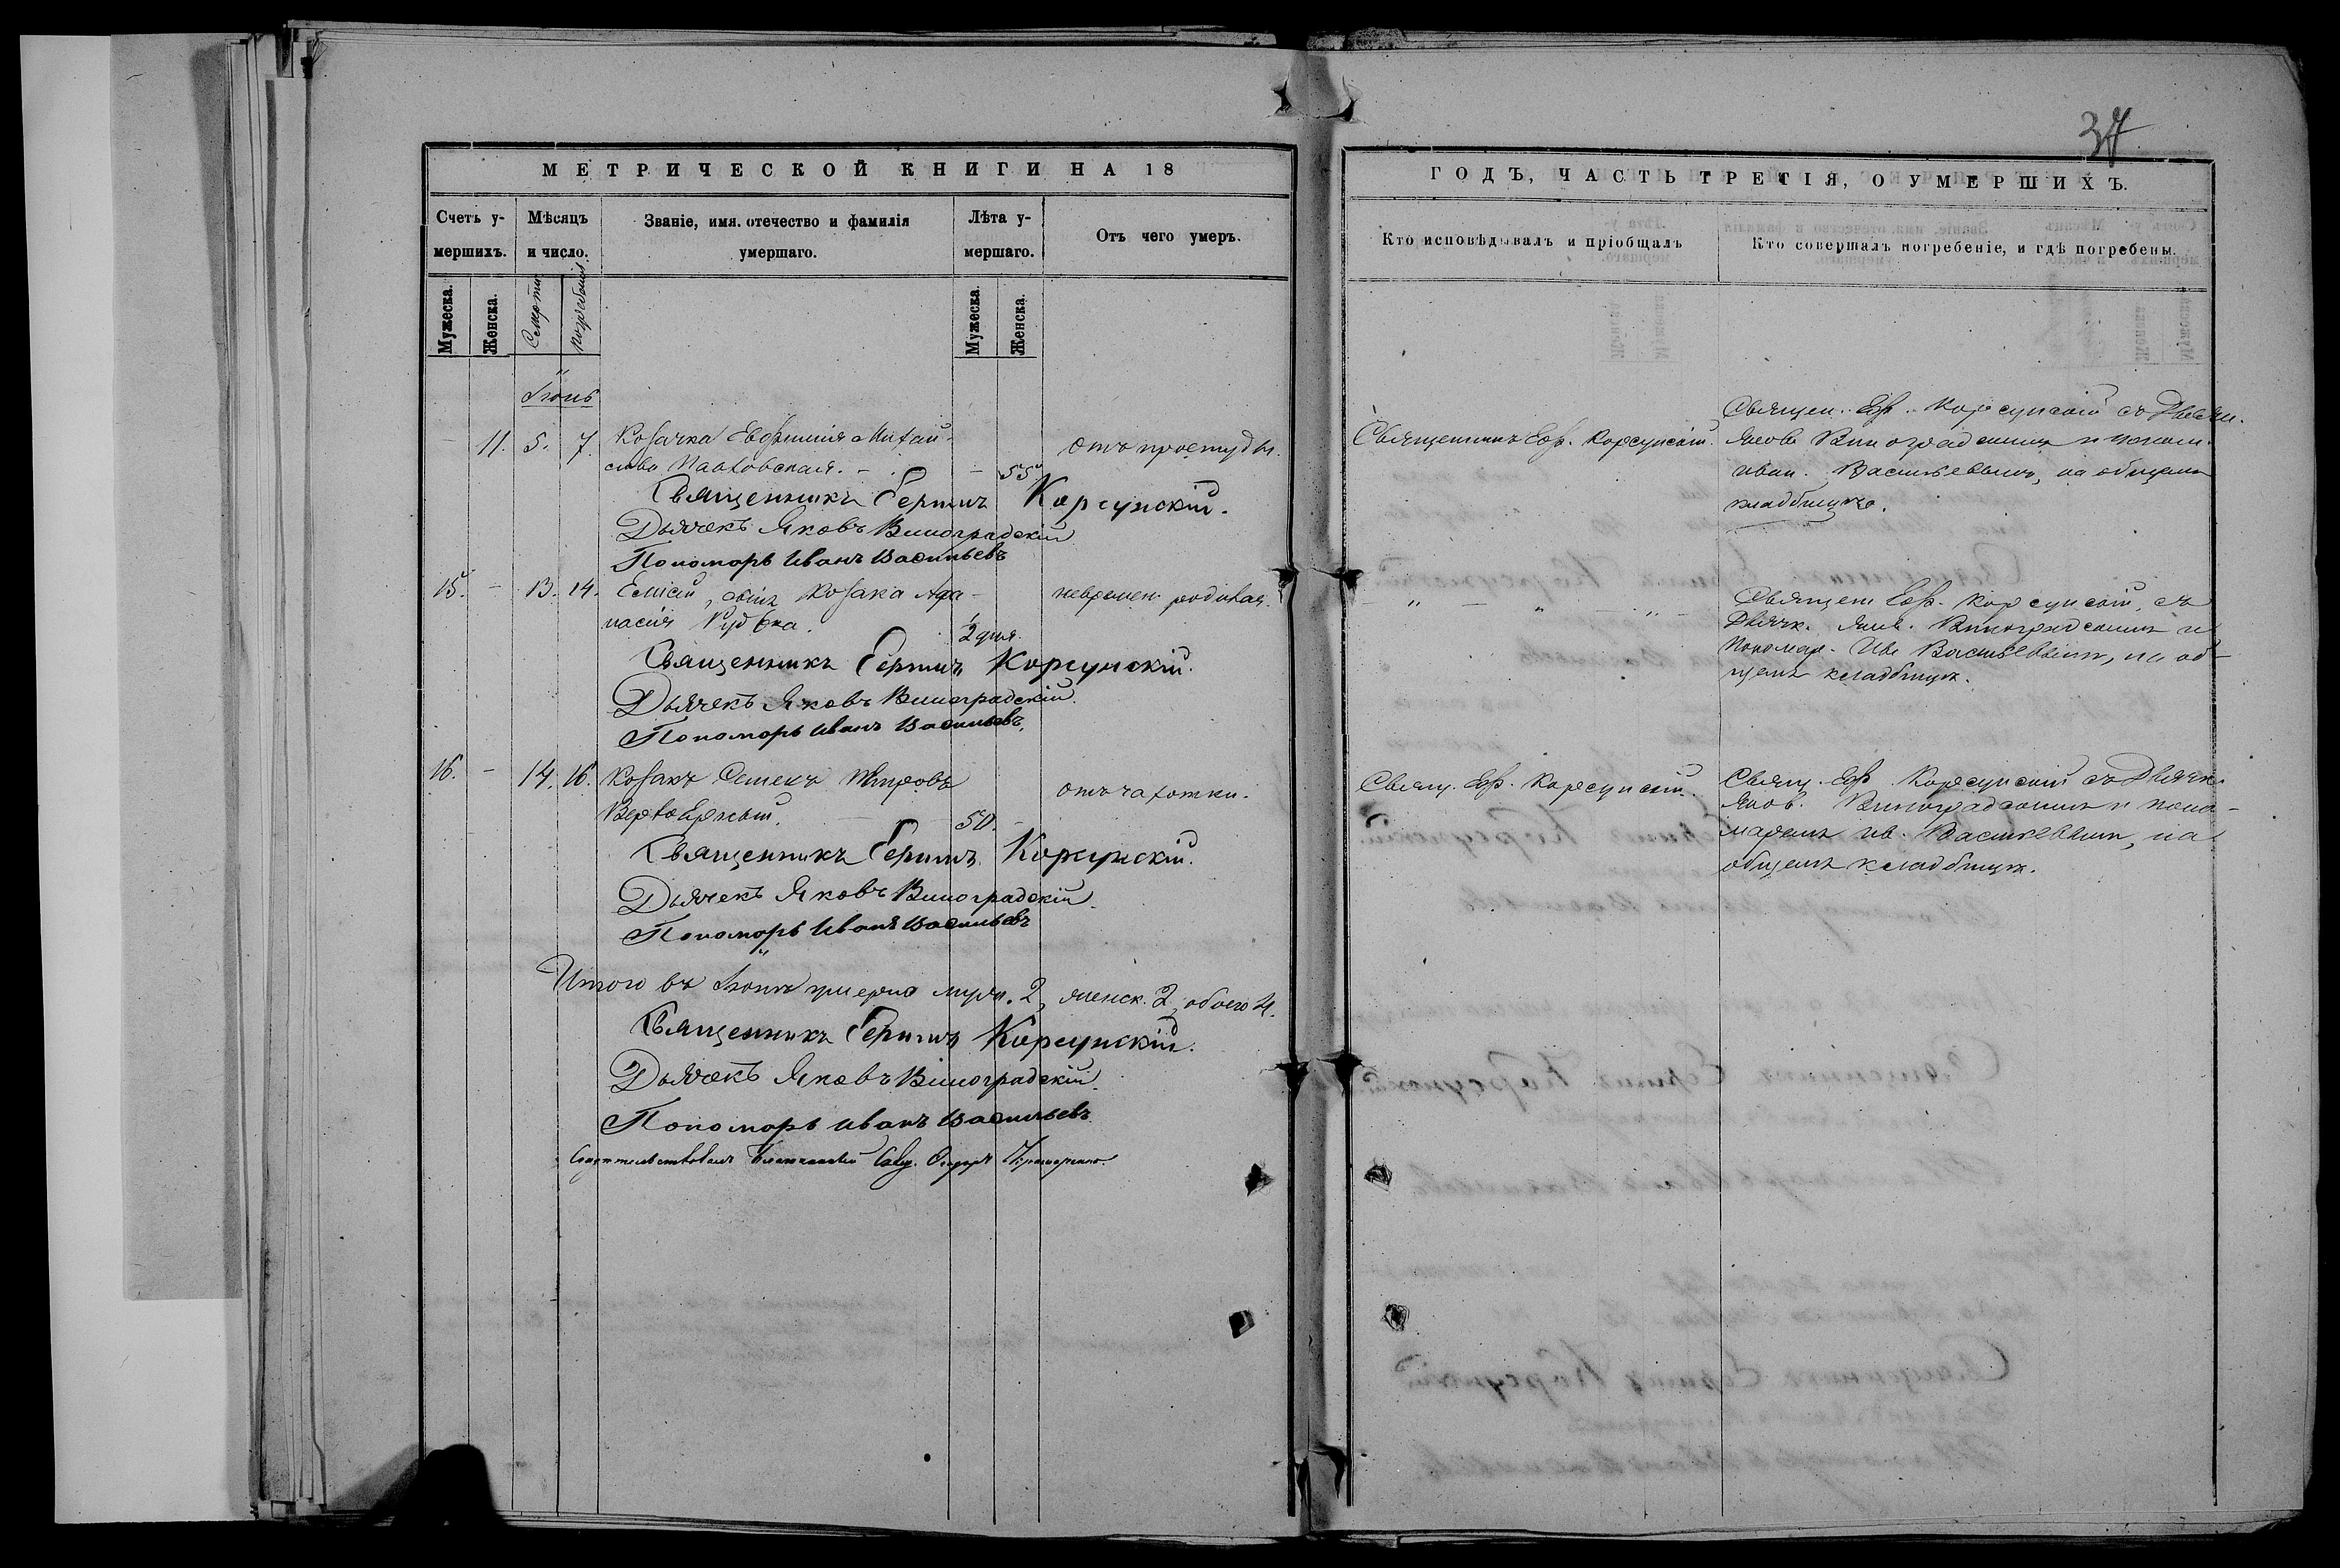 37
МЕТРИЧЕСКОЙ КНИГИ НА 18
Счетъ у-
мершихъ.
Мѣсяцъ
и число.
Званіе, имя. отечество и фамилія
умершаго.
Лѣта у-
мершаго.
Отъ чего умеръ.
Мужеска.
Женска.
Смерти
погребенія.
Мужеска.
Женска.
Іюнь
11. 5. 7. Козачка Евфимія Михай-
лова Павловская. - 55 отъ простуды.
Священникъ Ермилъ Корсунскій.
Дьячекъ Яковъ Виноградскій
Пономарь Иванъ Васильевъ
15. - 13. 14. Елисій, сынъ Козака Афа-
насія 2 дня.
Священникъ Ермилъ Корсунскій.
Дьячекъ Яковъ Виноградскій.
Пономарь Иванъ Васильевъ.
16. - 14. 16. Козакъ
50. отъ чахотки.
Священникъ Ермилъ Корсунскій.
Дьячекъ Яковъ Виноградскій.
Пономарь Иванъ Васильевъ
Итого въ Іюнѣ умерло муж. 2, женск. 2, обоего 4.
Священникъ Ермилъ Корсунскій.
Дьячекъ Яковъ Виноградскій.
Пономарь Иванъ Васильевъ
ГОДЪ, ЧАСТЬ ТРЕТІЯ, О УМЕРШИХЪ.
Кто исповѣдывалъ и пріобщалъ
Кто совершалъ погребеніе, и гдѣ погребены.
Священникъ Корсунскій.
Священ. Корсунскій съ Дьячк.
Яков. Виноградскимъ и поном.
Иван. Васильевымъ, на общемъ
кладбищѣ.
Священ. Корсунскій, съ
Дьячк. Яков. Виноградскимъ и
Пономар. Ив. Васильевымъ, на об-
щемъ кладбищѣ.
Свящ. Корсунскій.
Свящ. Корсунскій съ Дьячк.
Яков. Виноградскимъ и поно-
маремъ Ив. Васильевымъ, на
общемъ кладбищѣ.